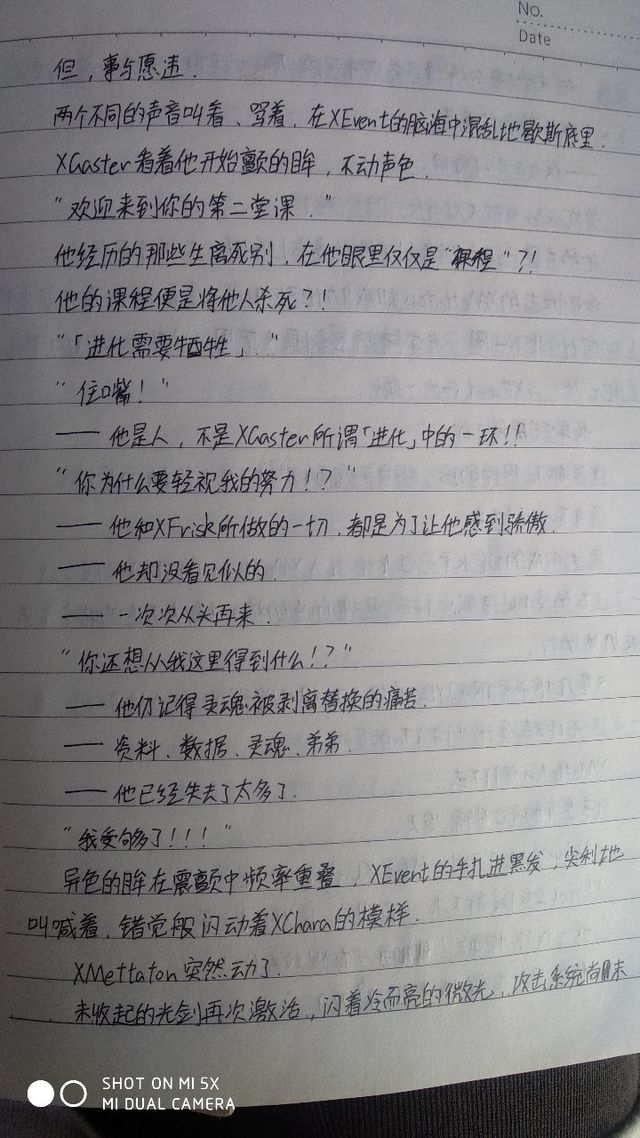 No.
Date
但，事与愿违.
两个不同的声音叫着、骂着，在XEvent的脑海中混乱地歇斯底里.
XGaster看着他开始颤的眸，不动声色.
"欢迎来到你的第二堂课."
他经历的那些生离死别，在他眼里仅仅是"课程"?!
他的课程便是将他人杀死?!
"「进化需要牺牲」."
"住嘴！"
——他是人，不是XGaster所谓「进化」中的一环!!
"你为什么要轻视我的努力!?"
——他和XFrisk所做的一切，都是为了让他感到骄傲.
——他却没看见似的.
——一次次从头再来.
"你还想从我这里得到什么!?"
——他仍记得灵魂被剥离替换的痛苦.
——资料、数据、灵魂、弟弟.
——他已经失去了太多了.
"我受够了!!!"
异色的眸在震颤中频率重叠，XEvent的手扎进黑发，尖利地
叫喊着，错觉般闪动着XChara的模样.
XMettaton突然动了.
未收起的光剑再次激活，闪着冷而亮的微光，攻击系统尚未
SHOT ON MI 5X
MI DUAL CAMERA